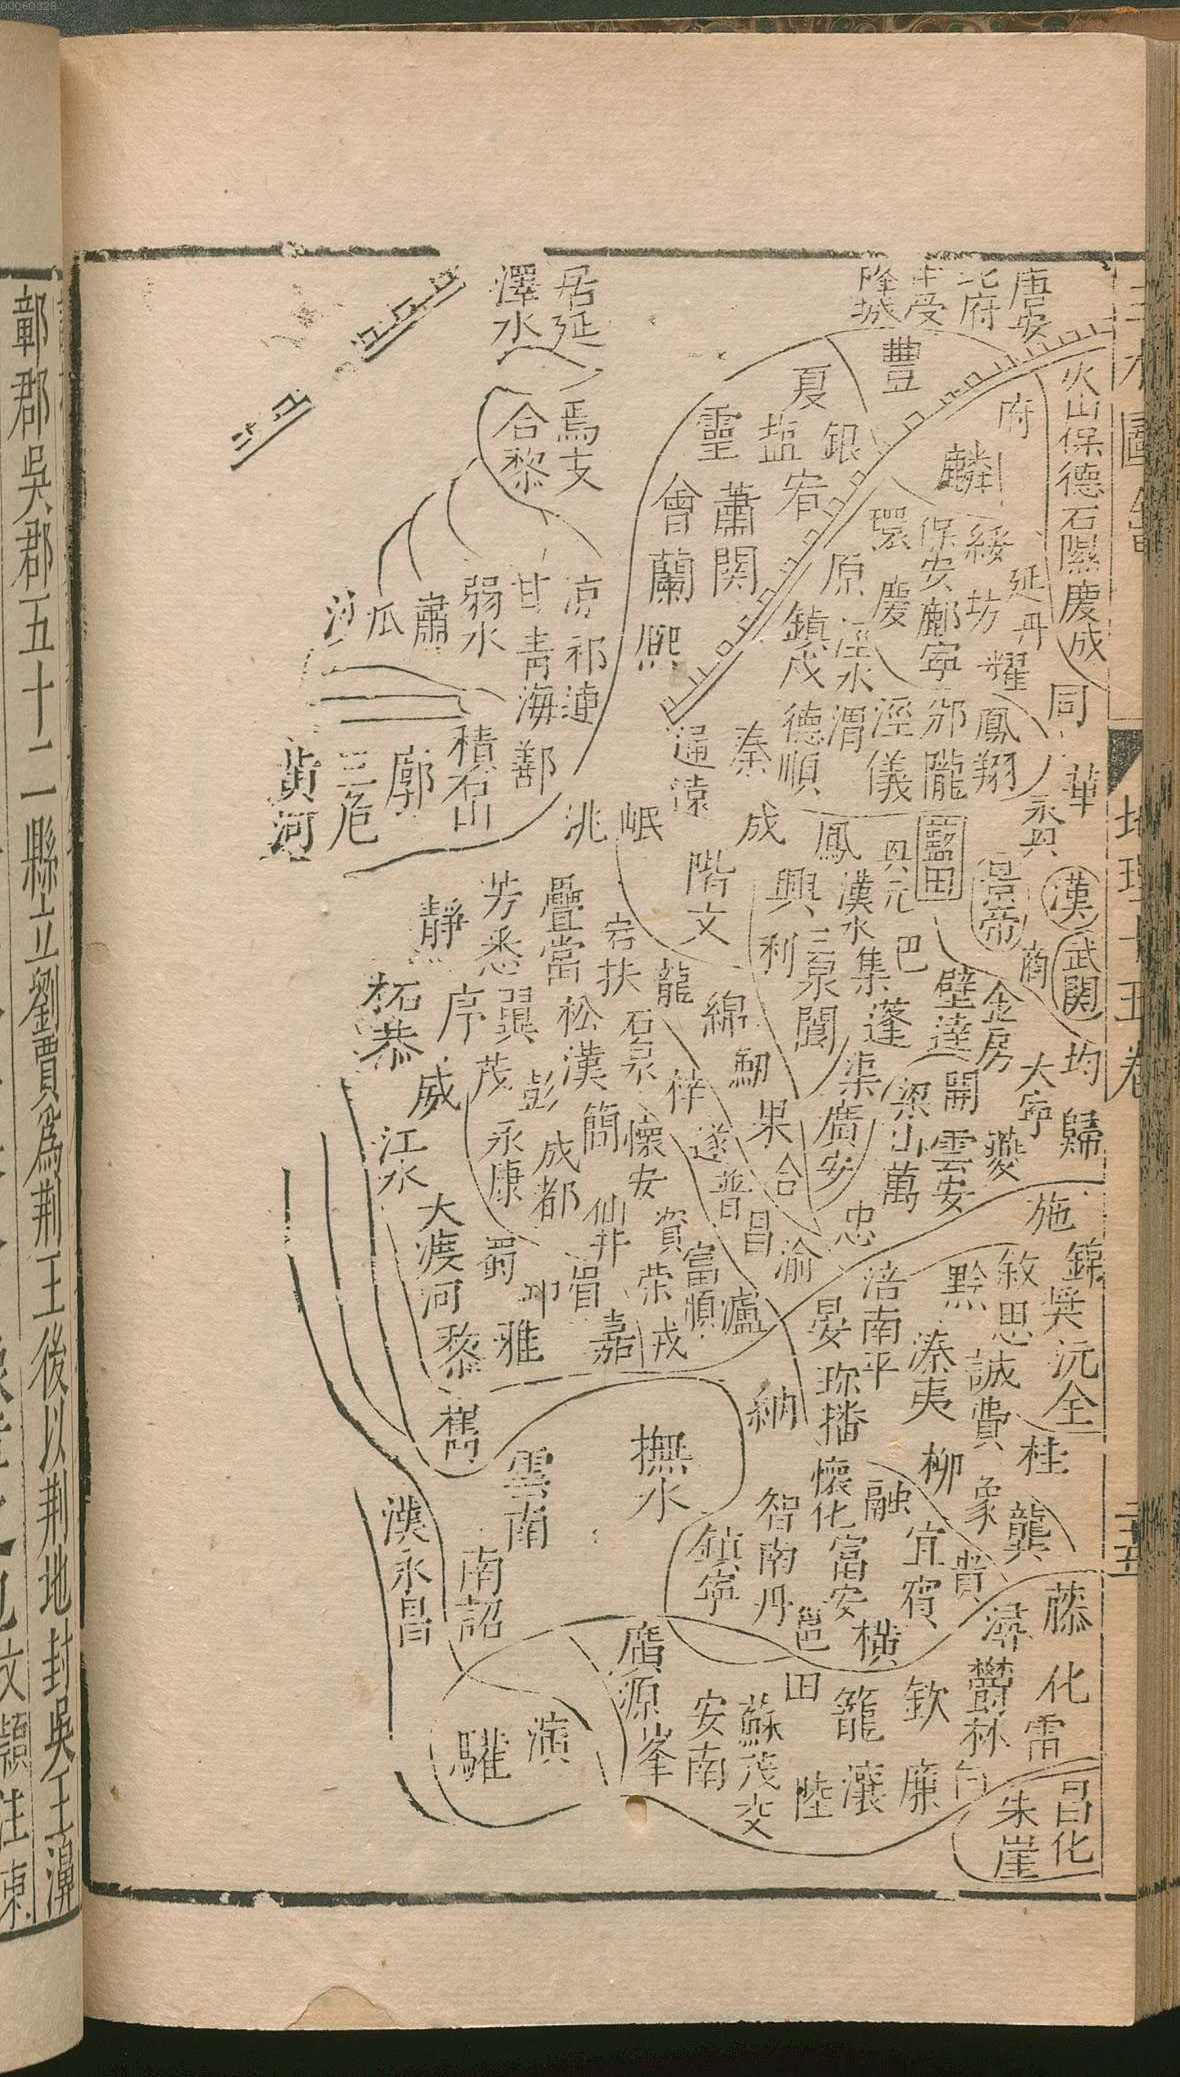 00060328
三才圖會
地理十五卷
唐安
北府
受
隆城
居延
澤水
豐
火山保德石隰慶成
府
麟
夏
銀
塩
靈
宥
蕭関
會
蘭
熙
綏
延丹
坊
耀
保安
鄜
寧
環
慶
原
涇水
鎮戎
德順
渭
涇
儀
邠
隴
鳳翔
同
華
焉支
合黎
凉
祁連
甘
青海
弱水
肅
瓜
沙
鄯
積石山
廓
三危
黄河
通遠
秦
成
鳳
興元
藍田
景帝
漢
武関
商
洮
岷
階
文
興
利
三泉
漢水
集
巴
壁
達
金
房
均
大寧
歸
疊
當
芳
悉
靜
柘
恭
宕
扶
松
龍
石泉
綿
劒
閬
蓬
渠
廣安
梁山
萬
開
雲安
夔
翼
茂
威
江水
彭
漢
簡
懷安
梓
遂
果
合
普
昌
渝
忠
永康
成都
仙井
資
富順
榮
瀘
戎
嘉
眉
邛
雅
蜀
大渡河
黎
嶲
施
錦
奬
沅
全
敘
思
誠
費
黔
溱
夷
涪
南平
晏
珎
播
納
撫水
雲南
南詔
漢永昌
懷化
富安
融
柳
象
桂
龔
藤
宜
賓
貴
潯
鎮寧
智
南丹
邕
橫
田
籠
欽
鬱林
化
雷
廣源
峯
安南
蘇茂
交
陸
瀼
廉
白
昌化
朱崖
演
驩
鄣郡吳郡五十二縣立劉賈爲荆王後以荆地封吳王濞
文穎注東